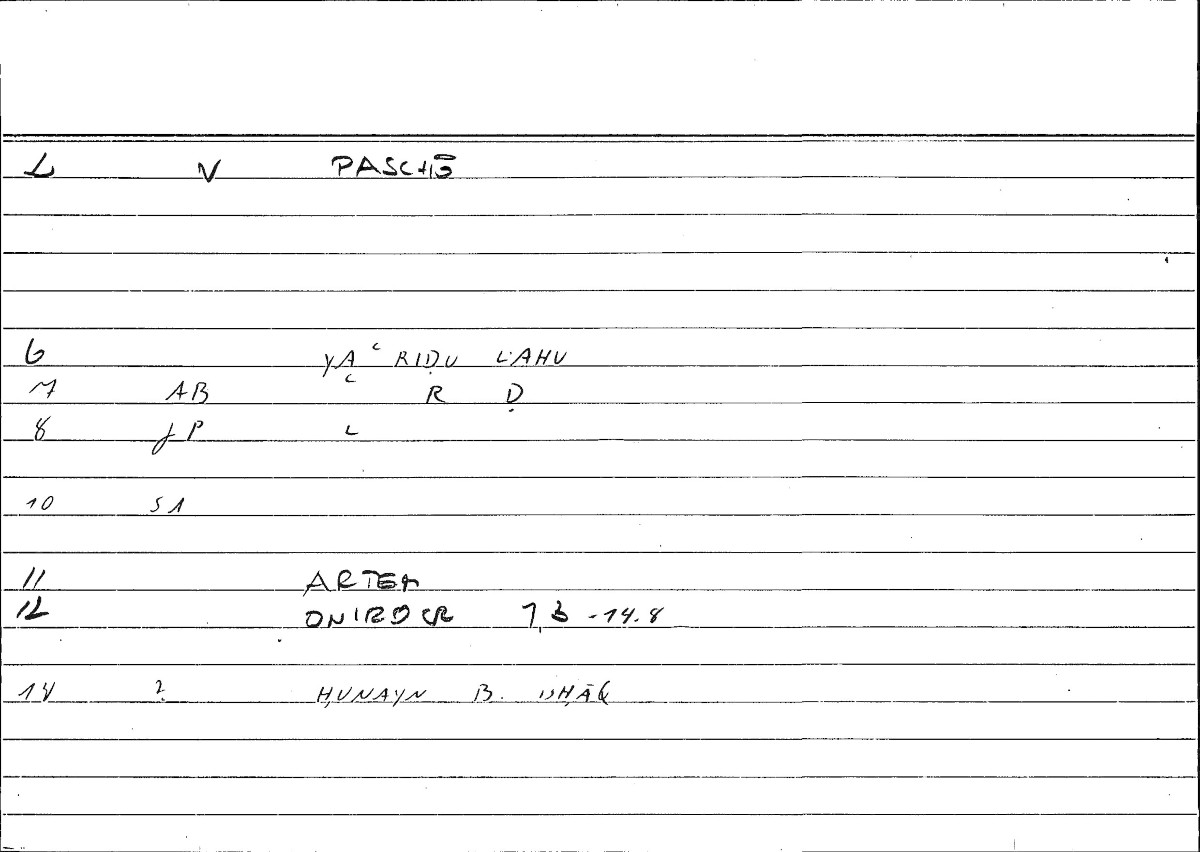 L V PASCHŌ
6 YAʿRIḌU LAHU
7 AB ʿ R Ḍ
8 JP L
10 SA
11 ARTEM
12 ONIROCR 7,3 -14.8
14 ? ḤUNAYN B. ISḤĀQ